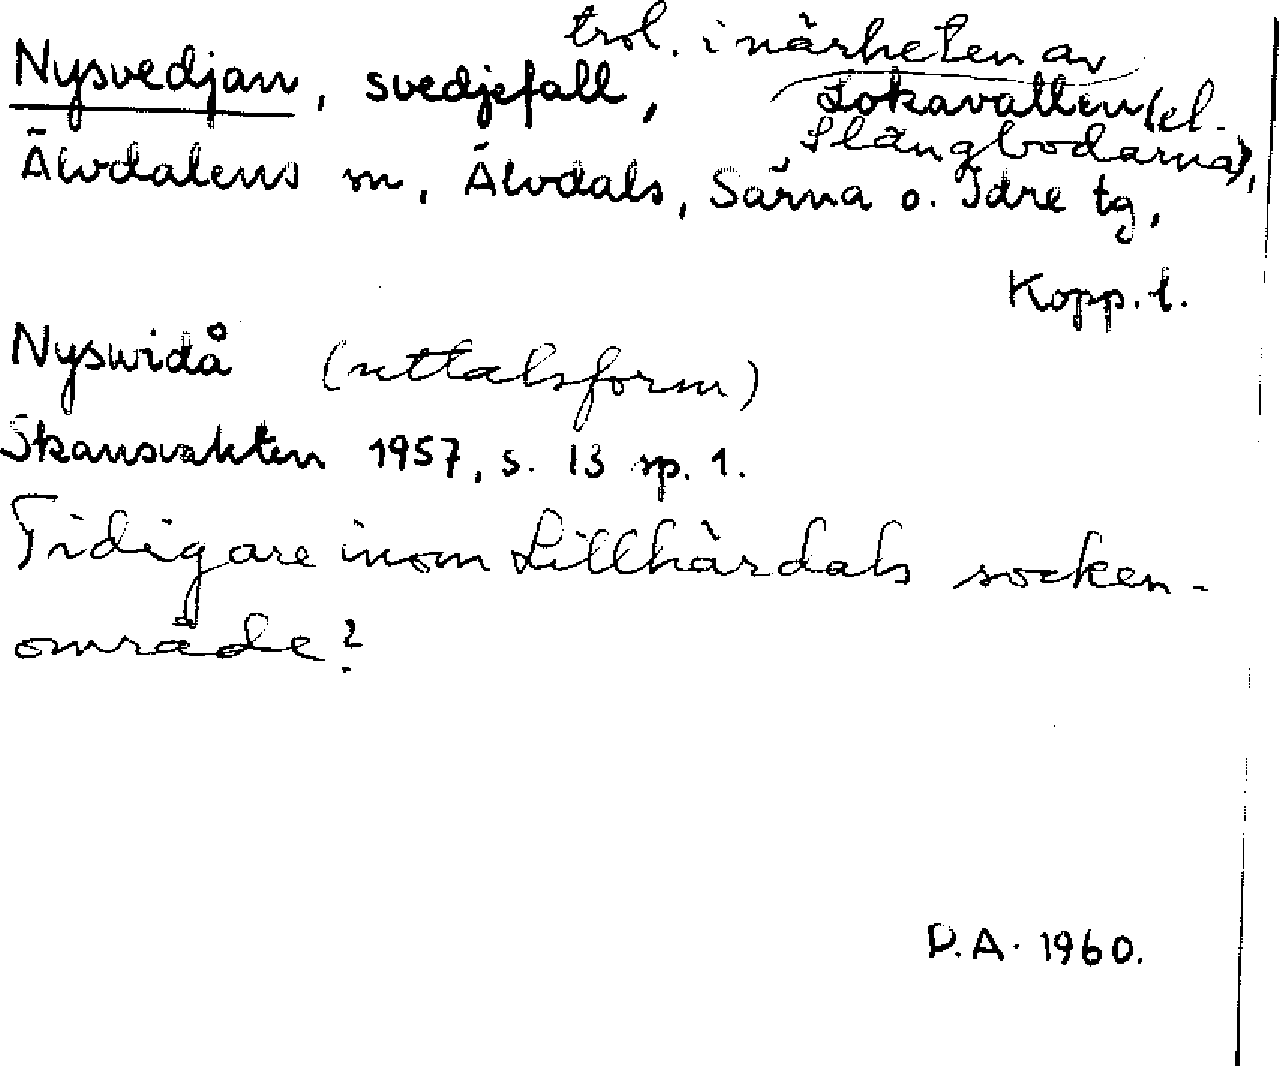 trol. i närheten av
Nysvedjan, svedjefall, Lokavallen (el.
Slängbodarna),
Älvdalens sn, Älvdals, Särna o. Idre tg,
Kopp. l.
Nyswidå (uttalsform)
Skansvakten 1957, s. 13 sp. 1.
Tidigare inom Lillhärdals socken-
område?
D.A. 1960.